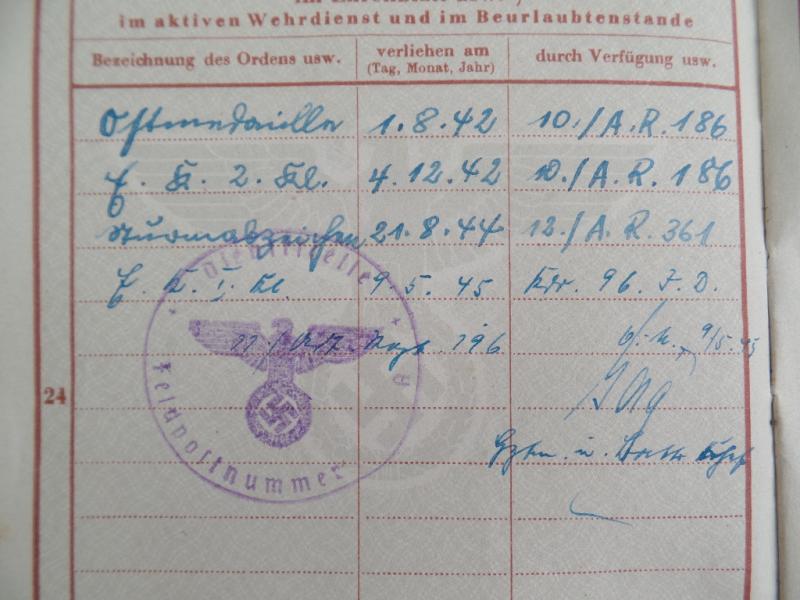 im aktiven Wehrdienst und im Beurlaubtenstande
Bezeichnung des Ordens usw. verliehen am (Tag, Monat, Jahr) durch Verfügung usw.
Ostmedaille 1.8.42 10./A.R.186
E. K. 2. Kl. 4.12.42 10./A.R.186
Sturmabzeichen 21.8.44 12./A.R.361
E. K. I. Kl. 9.5.45 Kdr. 96. I.D.
Dienststelle
11./Art. Regt. 196 9/5.45
24
Feldpostnummer